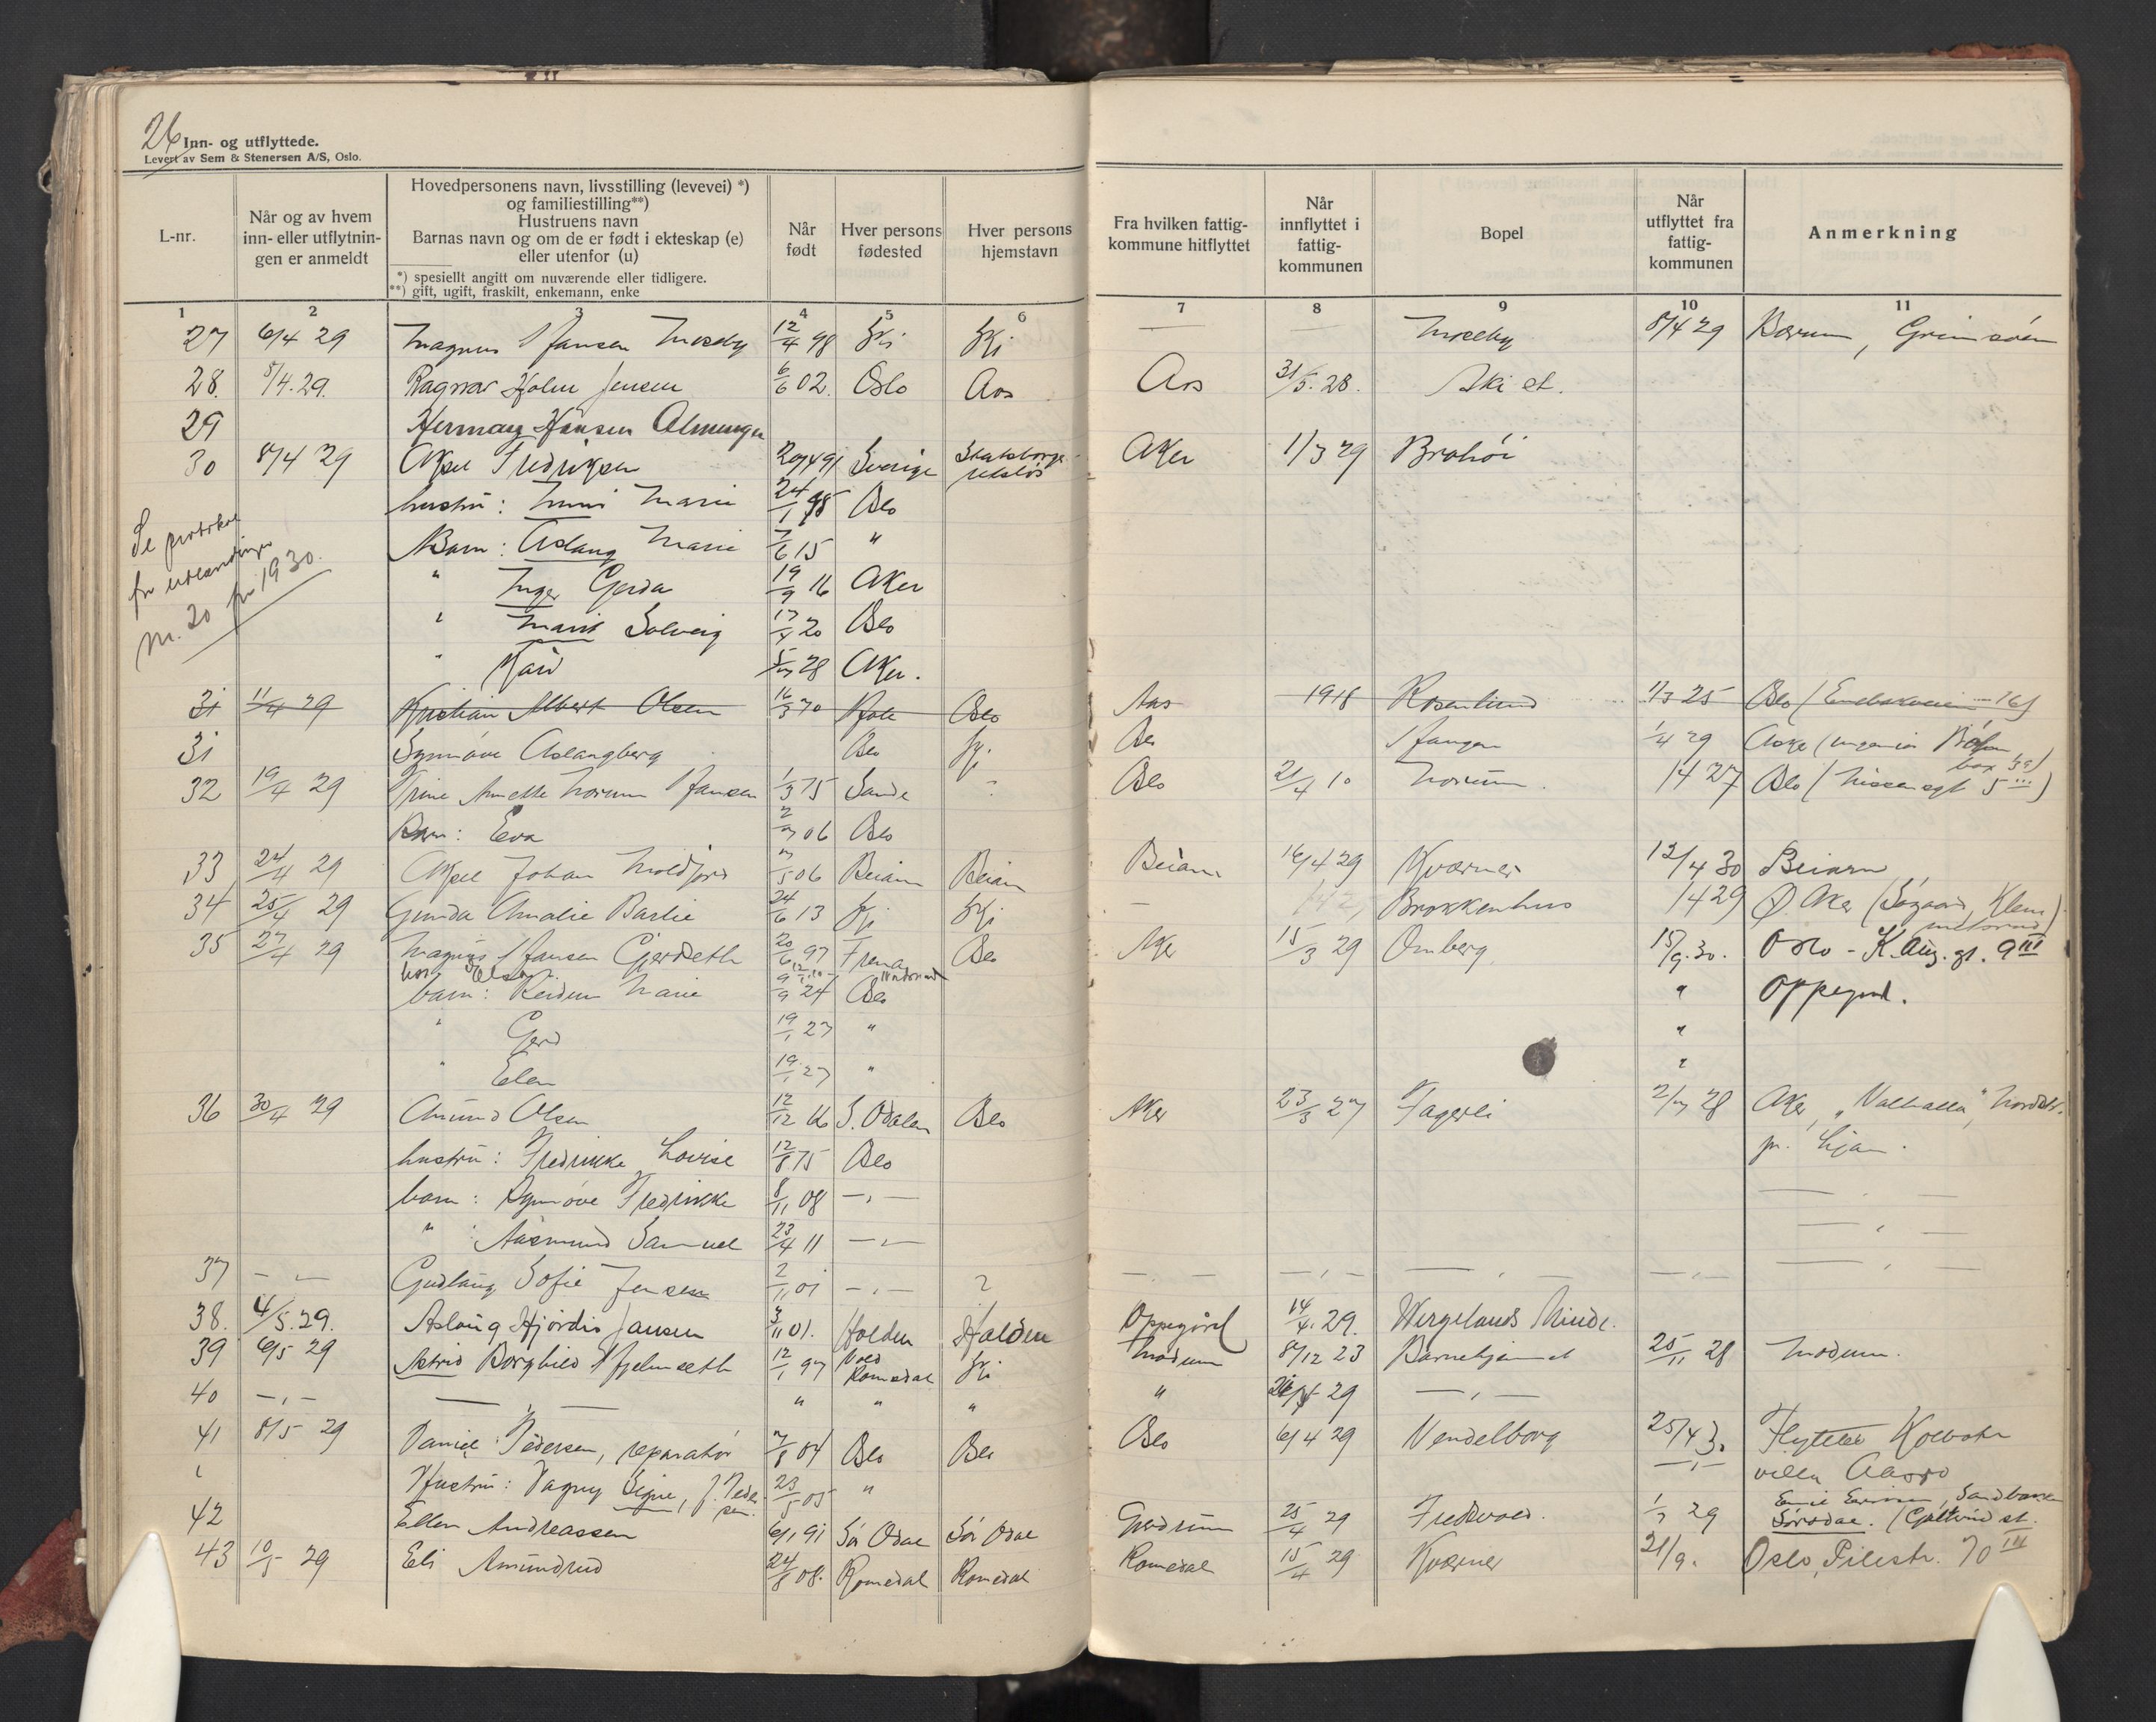 26 Inn- og utflyttede.
Levert av Sem & Stenersen A/S, Oslo.
L-nr.
Når og av hvem inn- eller utflytnin- gen er anmeldt
Hovedpersonens navn, livsstilling (levevei) *)
og familiestilling**)
Hustruens navn
Barnas navn og om de er født i ekteskap (e)
eller utenfor (u)
*) spesiellt angitt om nuværende eller tidligere.
**) gift, ugift, fraskilt, enkemann, enke
Når født
Hver persons fødested
Hver persons hjemstavn
Fra hvilken fattig- kommune hitflyttet
Når innflyttet i fattig- kommunen
Bopel
Når utflyttet fra fattig- kommunen
Anmerkning
1 2 3 4 5 6 7 8 9 10 11
27 6/4 29 Magnus Hansen Moseby 12/4 98 Ski Ski — — Moseby 8/4 29 Bærum,
28. 8/4.29. Ragnar Holm Jensen 6/6 02. Oslo Aas Aas 31/5.28. Ski st.
29 Herman Hansen
30 8/4 29 Aksel Fredriksen 20/4 91 Sverige Statsborgerretsløs Aker 1/3 29 Brohöi
hustru: Marie 24/1 98 Oslo
Barn: Aslaug Marie 7/6 15 "
" Inger Gerda 19/9 16 Aker
" Marit Solveig 17/4 20 Oslo
" Kåre 28 Aker.
Se protokol
for utlendinger
nr. 20 for 1930.
31 11/4 29 Kristian Albert Olsen 16/3 70 Oslo Aas 1918 Rosenlund 1/3 25 Oslo (16)
31 Synnöve Aslangberg Oslo Ski Oslo Haugen 1/4 29 Asker
32 19/4 29 Trine Annette Hansen 1/3 75 Sande Oslo 21/4 10 1/4 27 Oslo
Barn: Eva 06 Oslo
33 24/4 29 Aksel Johan Moldjord 06 Beiarn Beiarn Beiarn 16/4 29 Kværner 12/4 30 Beiarn
34 25/4 29 Gunda Amalie Barlie 24/6 13 Ski Ski — Brokkenhus 1/4 29 Ø. Aker
35 27/4 29 Magnus Hansen Gjerdeth 20/6 97 Frena Oslo Aker 15/3 29 Omberg 15/9.30. Oslo - K. Aug. gt. 9 III
barn: Reidun Marie 9/9 24 Oslo " Oppegård.
" Gerd 19/1 27 " "
" Elen 19/1 27 " "
36 30/4 29 Amund Olsen 12/12 66 S. Odalen Oslo Aker 23/3 27 Fagerli 28 Aker, "Valhalla",
pr. Ljan.
hustru: Fredrikke Lovise 12/8 75 Oslo
barn: Synnöve Fredrikke 8/11 08 —"—
" Aasmund Samuel 23/4 11 —"—
37 —"— Gudlaug Sofie Jensen 2/11 01 —"— ? —"— —"— —"— —"— —"—
38. 4/5.29. Aslaug Hjördis Jansen 3/11 01. Halden Halden Oppegård 14/4.29. Wergelands Minde.
39 6/5 29 Astrid Borghild Hjelmseth 12/1 97 Romedal Ski Modum 8/12 23 Barnehjemmet 25/11 28 Modum.
40 —"— —"— " " " " 29 —"—
41 8/5 29 Daniel Pedersen, reparatör 7/8 04 Oslo Oslo Oslo 6/4 29 Vendelborg 25/4 30 Flyttet Kolbotn
villa
Hustru: Dagny Signe, f. Pedersen. 23/5 05 " —"—
42 Ellen Andreassen 6/1 91 Sör Odal Sör Odal Gjerdrum 25/4 29 Fredvold. 29
43 10/5 29 Eli Amundrud 24/8 08. Romedal Romedal Romedal 15/4 29 Kværner 21/9. Oslo, Pilestr. 70 III